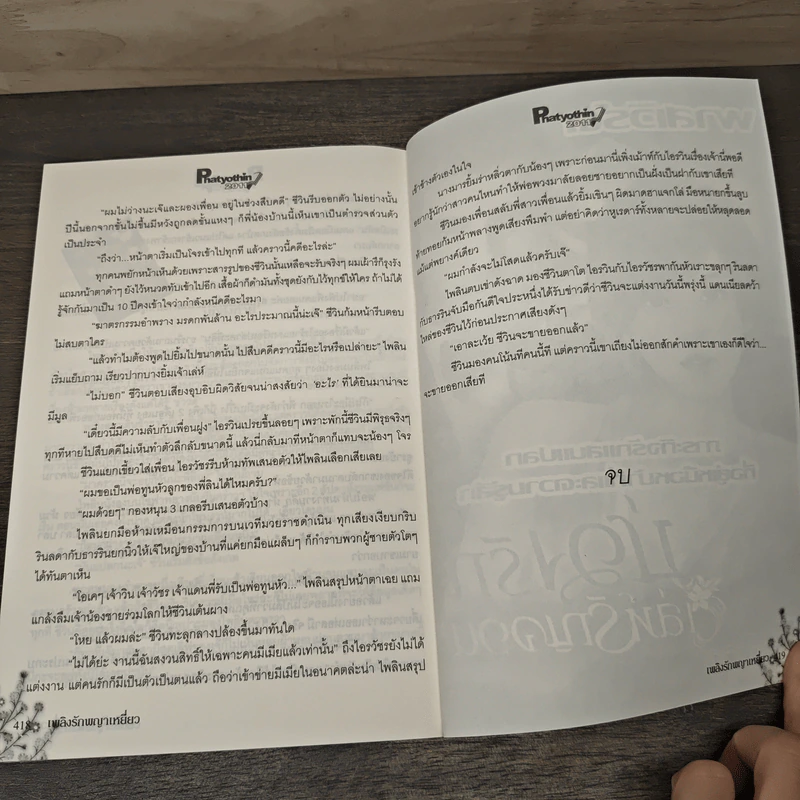 Phatyothin
2011
"ผมไม่ว่างนะเจ๊และผองเพื่อน อยู่ในช่วงสืบคดี" ชีวินรีบออกตัว ไม่อย่างนั้น
ปีนี้นอกจากขั้นไม่ขึ้นมีหวังถูกลดขั้นแหงๆ ก็พี่น้องบ้านนี้เห็นเขาเป็นตำรวจส่วนตัว
เป็นประจำ
"ถึงว่า...หน้าตาเริ่มเป็นโจรเข้าไปทุกที แล้วคราวนี้คดีอะไรล่ะ"
ทุกคนพยักหน้าเห็นด้วยเพราะสารรูปของชีวินนั้นเหลือจะรับจริงๆ ผมเผ้ารึก็รุงรัง
แถมหน้าตาดำๆ ยังไว้หนวดทับเข้าไปอีก เสื้อผ้าก็ดำมันทั้งชุดยังกับไว้ทุกข์ให้ใคร ถ้าไม่ได้
รู้จักกันมาเป็น 10 ปีคงเข้าใจว่ากำลังหนีคดีอะไรมา
"ฆาตรกรรมอำพราง มรดกพันล้าน อะไรประมาณนี้น่ะเจ๊" ชีวินก้มหน้ารีบตอบ
ไม่สบตาใคร
"แล้วทำไมต้องพูดไปยิ้มไปขนาดนั้น ไปสืบคดีคราวนี้มีอะไรหรือเปล่ายะ" ไพลิน
เริ่มแย็บถาม เรียวปากบางยิ้มเจ้าเล่ห์
"ไม่บอก" ชีวินตอบเสียงอุบอิบผิดวิสัยจนน่าสงสัยว่า 'อะไร' ที่ได้ยินมาน่าจะ
มีมูล
"เดี๋ยวนี้มีความลับกับเพื่อนฝูง" ไอรวินเปรยขึ้นลอยๆ เพราะพักนี้ชีวินมีพิรุธจริงๆ
ทุกทีหายไปสืบคดีไม่เห็นทำตัวลึกลับขนาดนี้ แล้วนี่กลับมาทีหน้าตาก็แทบจะน้องๆ โจร
ชีวินแยกเขี้ยวใส่เพื่อน ไอรวัชรรีบห้ามทัพเสนอตัวให้ไพลินเลือกเสียเลย
"ผมขอเป็นพ่อทูนหัวลูกของพี่ลินได้ไหมครับ?"
"ผมด้วยๆ" กองหนุน 3 เกลอรีบเสนอตัวบ้าง
ไพลินยกมือห้ามเหมือนกรรมการบนเวทีมวยราชดำเนิน ทุกเสียงเงียบกริบ
รินลดากับธารรินยกนิ้วให้เจ๊ใหญ่ของบ้านที่แค่ยกมือแผล็บๆ ก็กำราบพวกผู้ชายตัวโตๆ
ได้ทันตาเห็น
"โอเคๆ เจ้าวิน เจ้าวัชร เจ้าแดนพี่รับเป็นพ่อทูนหัว..." ไพลินสรุปหน้าตาเฉย แถม
แกล้งลืมเจ้าน้องชายร่วมโลกให้ชีวินเต้นผาง
"โหย แล้วผมล่ะ" ชีวินทะลุกลางปล้องขึ้นมาทันใด
"ไม่ได้ย่ะ งานนี้ฉันสงวนสิทธิ์ให้เฉพาะคนมีเมียแล้วเท่านั้น" ถึงไอรวัชรยังไม่ได้
แต่งงาน แต่คนรักก็มีเป็นตัวเป็นตนแล้ว ถือว่าเข้าข่ายมีเมียในอนาคตล่ะน่า ไพลินสรุป
418 เพลิงรักพญาเหยี่ยว
Phatyothin
2011
เข้าข้างตัวเองในใจ
นางมารยิ้มร่าหลิ่วตากับน้องๆ เพราะก่อนมานี่เพิ่งเม้าท์กับไอรวินเรื่องเจ้านี่พอดี
อยากรู้นักว่าสาวคนไหนทำให้พ่อพวงมาลัยลอยชายอยากเป็นฝั่งเป็นฝากับเขาเสียที
ชีวินมองเพื่อนสลับพี่สาวเพื่อนแล้วยิ้มเขินๆ ผิดมาดฮาแจกโล่ มือหนายกขึ้นลูบ
ท้ายทอยก้มหน้าพลางพูดเสียงพึมพำ แต่อย่าคิดว่าหูเรดาร์ทั้งหลายจะปล่อยให้หลุดลอด
แม้แต่พยางค์เดียว
"ผมกำลังจะไม่โสดแล้วครับเจ๊"
ไพลินตบเข่าดังฉาด มองชีวินตาโต ไอรวินกับไอรวัชรพากันหัวเราะขลุกๆ รินลดา
กับธารรินจับมือกันดีใจประหนึ่งได้รับข่าวดีว่าชีวินจะแต่งงานวันนี้พรุ่งนี้ แดนเนียลคว้า
ไหล่ของชีวินไว้ก่อนประกาศเสียงดังๆ
"เอาละเว้ย ชีวินจะขายออกแล้ว"
ชีวินมองคนโน้นทีคนนี้ที แต่คราวนี้เขาเถียงไม่ออกสักคำเพราะเขาเองก็ดีใจว่า...
จะขายออกเสียที
จบ
เพลิงรักพญาเหยี่ยว